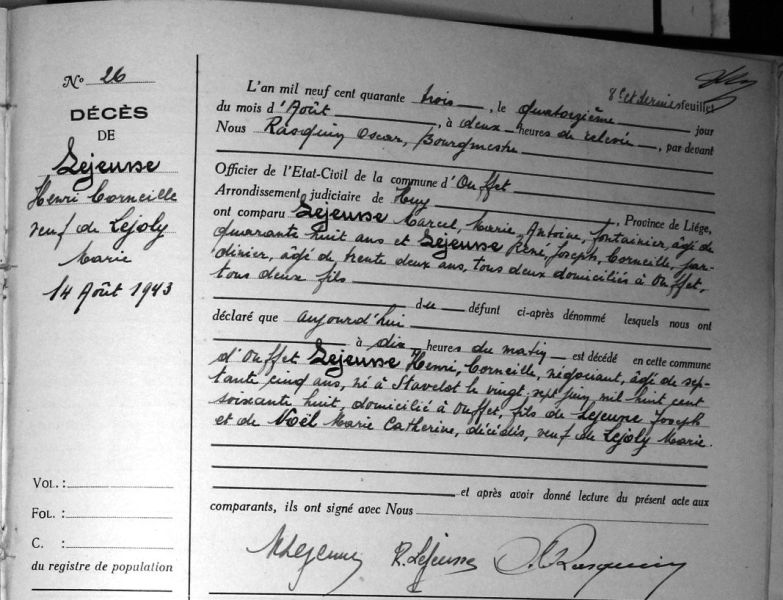 N° 26
DÉCÈS
DE
Lejeusne
Henri Corneille
veuf de Lejoly
Marie
14 Août 1943
VOL. :
FOL. :
C. :
du registre de population
8e et dernier feuillet
L'an mil neuf cent quarante trois, le quatorzième jour
du mois d'Août, à deux heures de relevée, par devant
Nous Rasquin Oscar, Bourgmestre
Officier de l'Etat-Civil de la commune d'Ouffet
Arrondissement judiciaire de Huy, Province de Liége,
ont comparu Lejeusne Marcel, Marie, Antoine, fontainier, âgé de
quarante huit ans et Lejeusne René, Joseph, Corneille, jar-
dinier, âgé de trente deux ans, tous deux domiciliés à Ouffet,
tous deux fils
d-u défunt ci-après dénommé lesquels nous ont
déclaré que aujourd'hui
à dix heures du matin est décédé en cette commune
d'Ouffet Lejeusne Henri, Corneille, négociant, âgé de sep-
tante cinq ans, né à Stavelot le vingt-sept juin mil huit cent
soixante huit, domicilié à Ouffet, fils de Lejeune Joseph
et de Noël Marie Catherine, décédés, veuf de Lejoly Marie.
et après avoir donné lecture du présent acte aux
comparants, ils ont signé avec Nous
MLejeune R. Lejeusne O. Rasquin